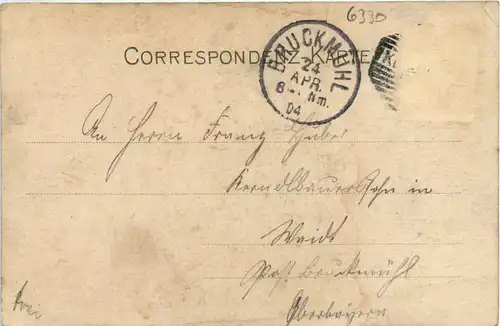 6330
CORRESPONDENZ-KARTE
BRUCKMÜHL
24
APR.
8 Nm.
04
An Herrn Franz Huber
Kerndlbauerssohn in
Waidt
Post Bruckmühl
Oberbayern